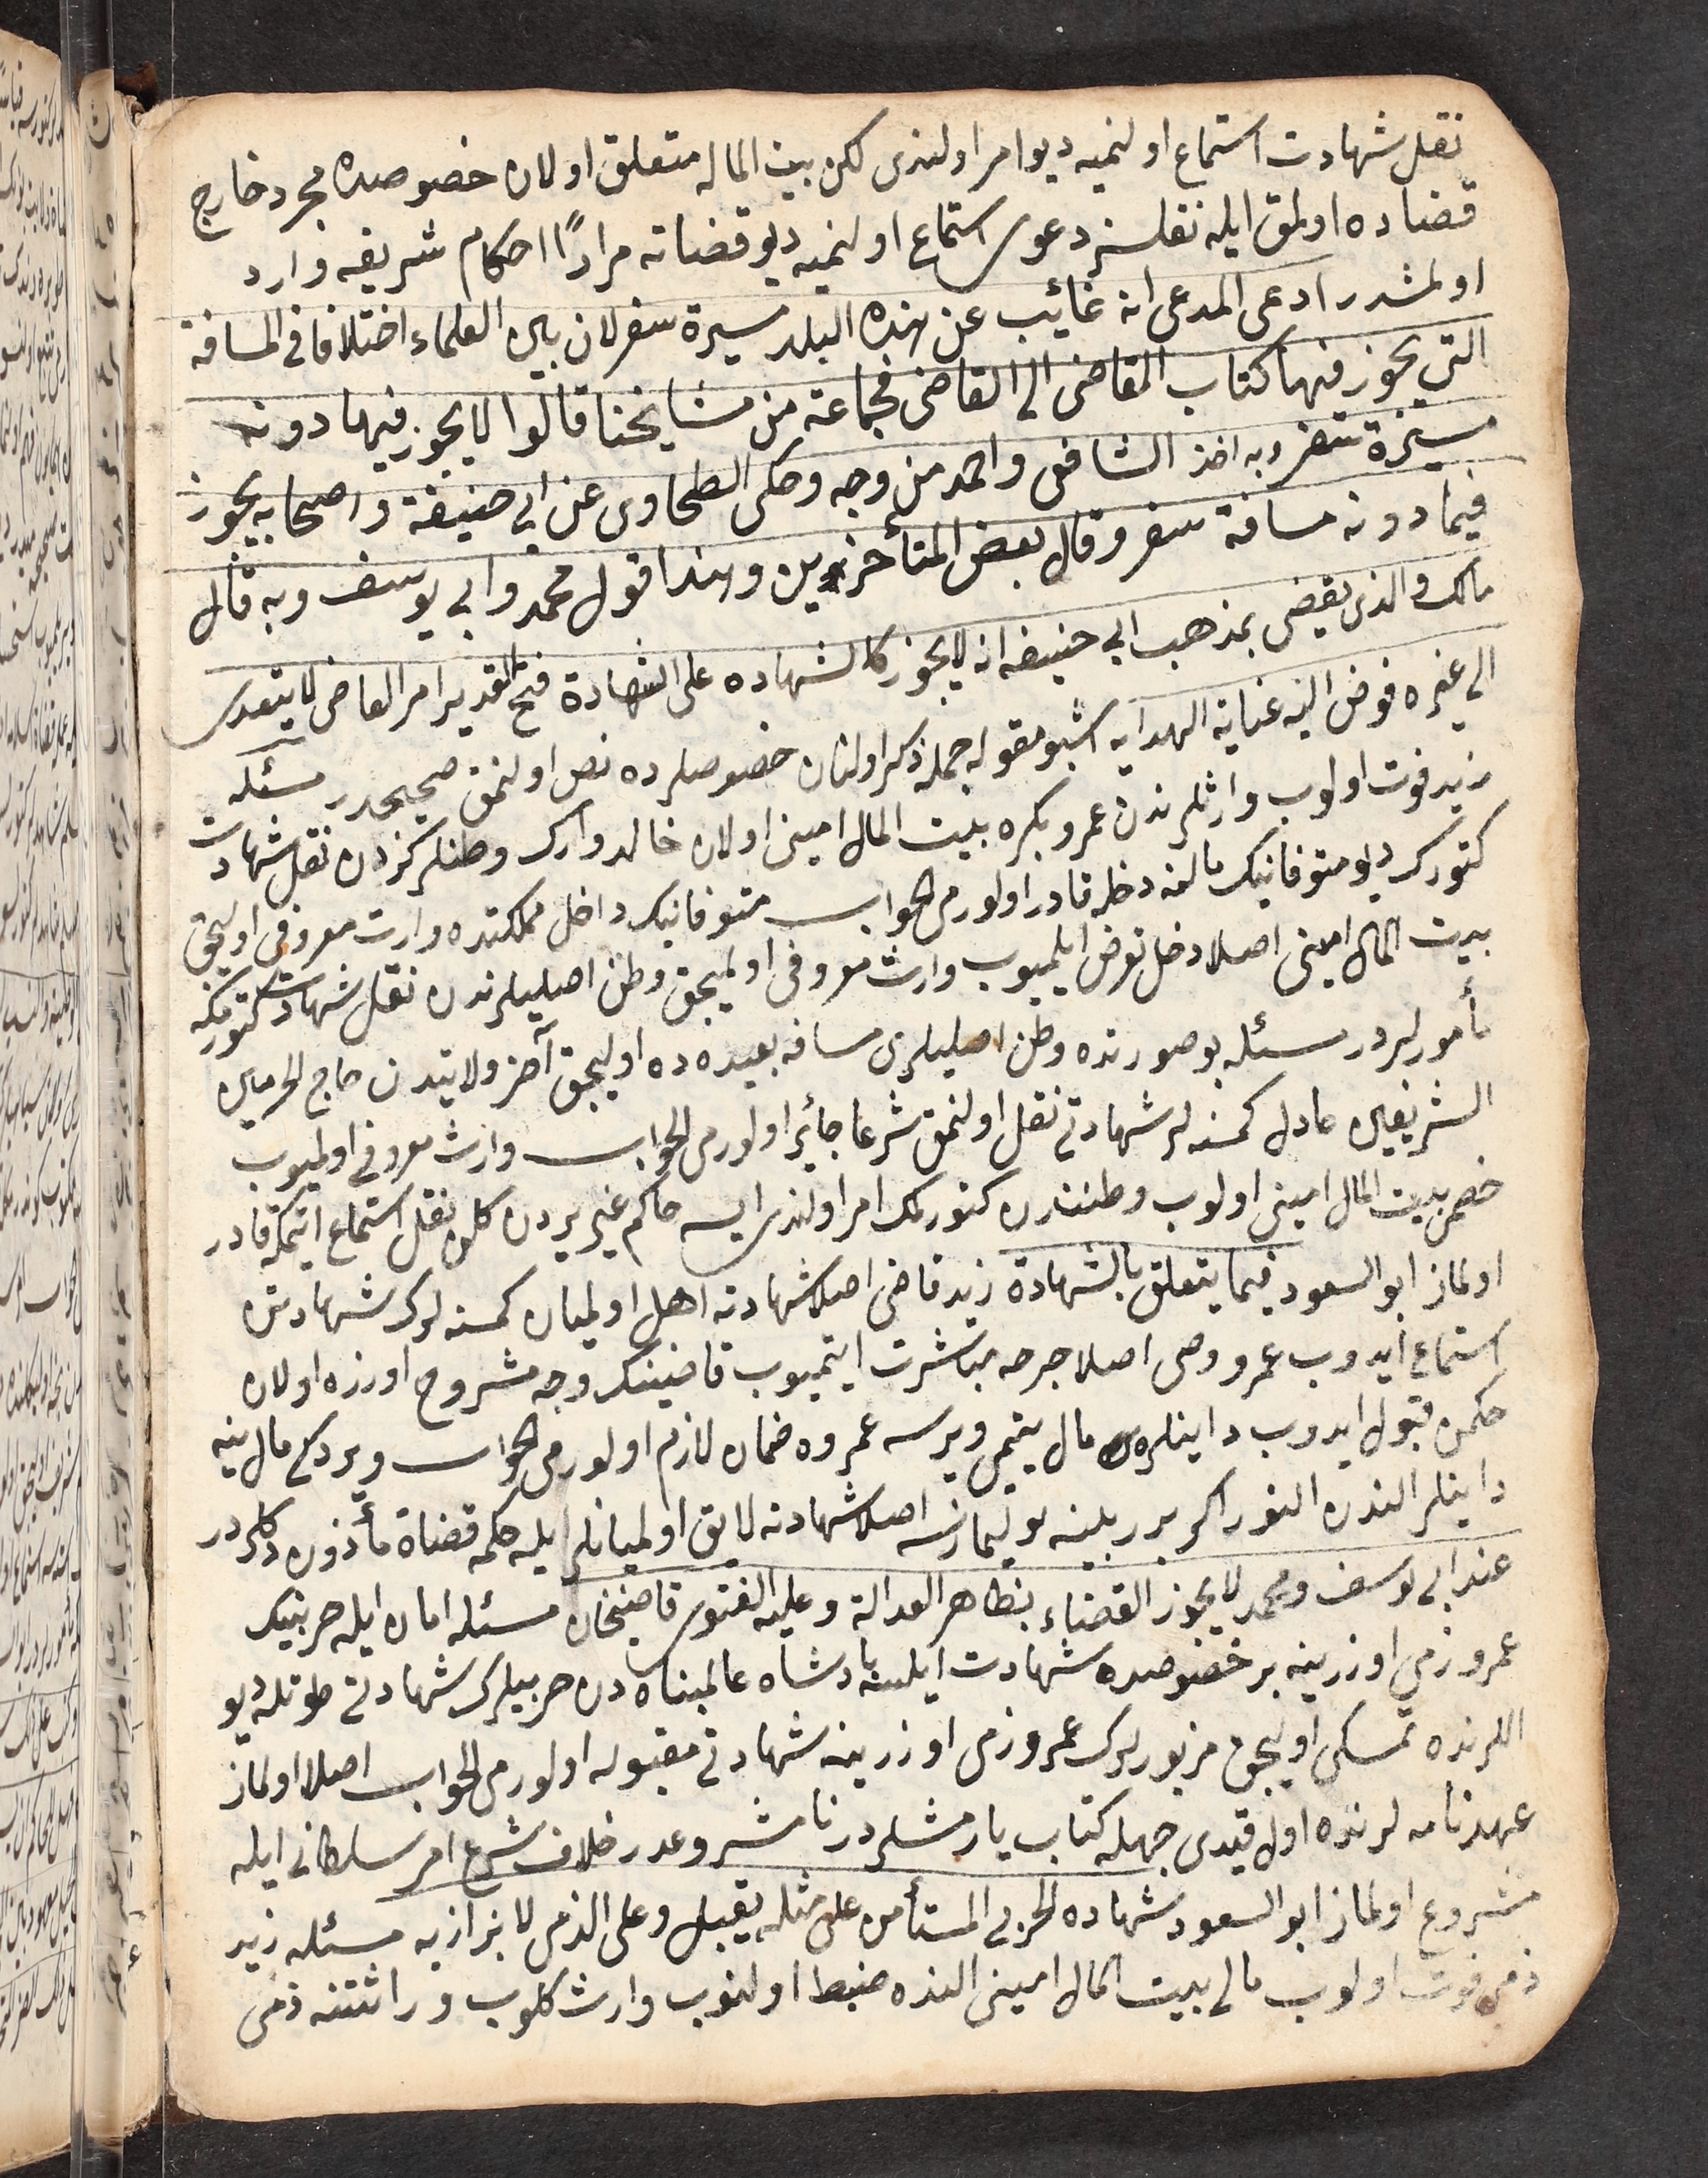 نقل شهادت استماع اولنميه ديو امر اولندى لكن بيت الماله متعلق اولان خصوصده مجرد خارج
قضاده اولمق ايله نقلسز دعوى استماع اولنميه ديو قضاته مرارًا احكام شريفه وارد
اولمشدر ادعى المدعى انه غائب عن هذه البلد مسيرة سفر لان بين العلماء اختلافا فى المسافة
التي يجوز فيها كتاب القاضى الى القاضى فجماعة من مشايخنا قالوا لا يجوز فيها دونه
مسيرة سفر وبه اخذ الشافعى واحمد من وجه وحكى الطحاوى عن ابي حنيفة واصحابه يجوز
فيما دونه مسافة سفر وقال بعض المتأخرين وهذا قول محمد وابي يوسف وبه قال
مالك والذى يقضى بمذهب ابي حنيفه انه لا يجوز كالشهاده على الشهادة فتح القدير امر القاضى لا يتعدى
الى غيره فوض اليه عناية الهدايه اشبو مقوله جمله ذكر اولنان خصوصلرده نص اولنمق صحيحدر مسئله
زيد فوت اولوب وارثلرندن عمرو بكره بيت المال امينى اولان خالد وارك وطنلركزدن نقل شهادت
كتورك ديو متوفانيك مالنه دخله قادر اولورمى الجواب متوفانيك داخل مملكتده وارث معروفى اوليجق
بيت المال امينى اصلا دخل تعرض ايلميوب وارث معروفى اولميجق وطن اصليلرندن نقل شهادت كتورمكه
مأمورلردر مسئله بو صورتده وطن اصليلرى مسافه بعيده ده اوليجق آخر ولايتدن حاج الحرمين
الشريفين عادل كمسنه لر شهادتي نقل اولنمق شرعا جائز اولورمى الجواب وارث معروفي اولميوب
خصمى بيت المال امينى اولوب وطنندن كتورمك امر اولندى ايسه حاكم غيرى يردن كلن نقل استماع ايتمكه قادر
اولماز ابو السعود فيما يتعلق بالشهادة زيد قاضى اصلا شهادته اهل اولميان كمسنه لرك شهادتن
استماع ايدوب عمرو وصى اصلا جرحه مباشرت ايتميوب قاضينك وجه مشروح اوزره اولان
حكمن قبول ايدوب داينلره مال يتيمى ويرسه عمروه ضمان لازم اولورمى الجواب ويردكى مال ينه
داينلر الندن النور اكر بر ربلينه بولنمازسه اصلا شهادته لايق اولميانلر ايله حكمه قضاة مأذون دكلردر
عند ابي يوسف ومحمد لا يجوز القضاء بظاهر العدالة وعليه الفتوى قاضيخان مسئله امان ايله حربينيك
عمرو ذمي اوزرينه بر خصوصده شهادت ايلسه پادشاه عالمپناه دن حربيلرك شهادتى طوتله ديو
اللرنده تمسكى اوليجق مزبورلرك عمرو ذمى اوزرينه شهادتي مقبوله اولورمى الجواب اصلا اولماز
عهدنامه لرنده اول قيدى جهله كتاب يازمشلردر نامشروعدر خلاف شرع امر سلطانى ايله
مشروع اولماز ابو السعود شهاده الحربي المستأمن على مثله يقبل وعلى الذمى لا بزازيه مسئله زيد
ذمى فوت اولوب مالى بيت المال امينى النده ضبط اولنوب وارث كلوب وراثتنه ذمى